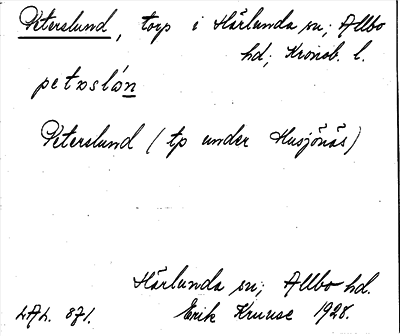 Peterslund, torp i Härlunda sn; Allbo
hd; Kronob. l.
petəslón
Peterslund (tp under Husjönäs)
Härlunda sn; Allbo hd.
LAL. 871. Erik Kruuse 1928.